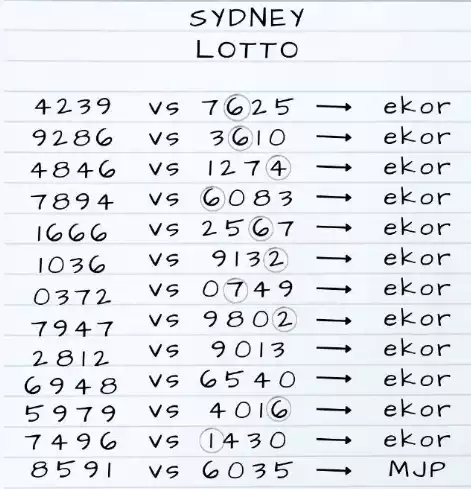 SYDNEY
LOTTO
4239 vs 7625 → ekor
9286 vs 3610 → ekor
4846 vs 1274 → ekor
7894 vs 6083 → ekor
1666 vs 2567 → ekor
1036 vs 9132 → ekor
0372 vs 0749 → ekor
7947 vs 9802 → ekor
2812 vs 9013 → ekor
6948 vs 6540 → ekor
5979 vs 4016 → ekor
7496 vs 1430 → ekor
8591 vs 6035 → MJP